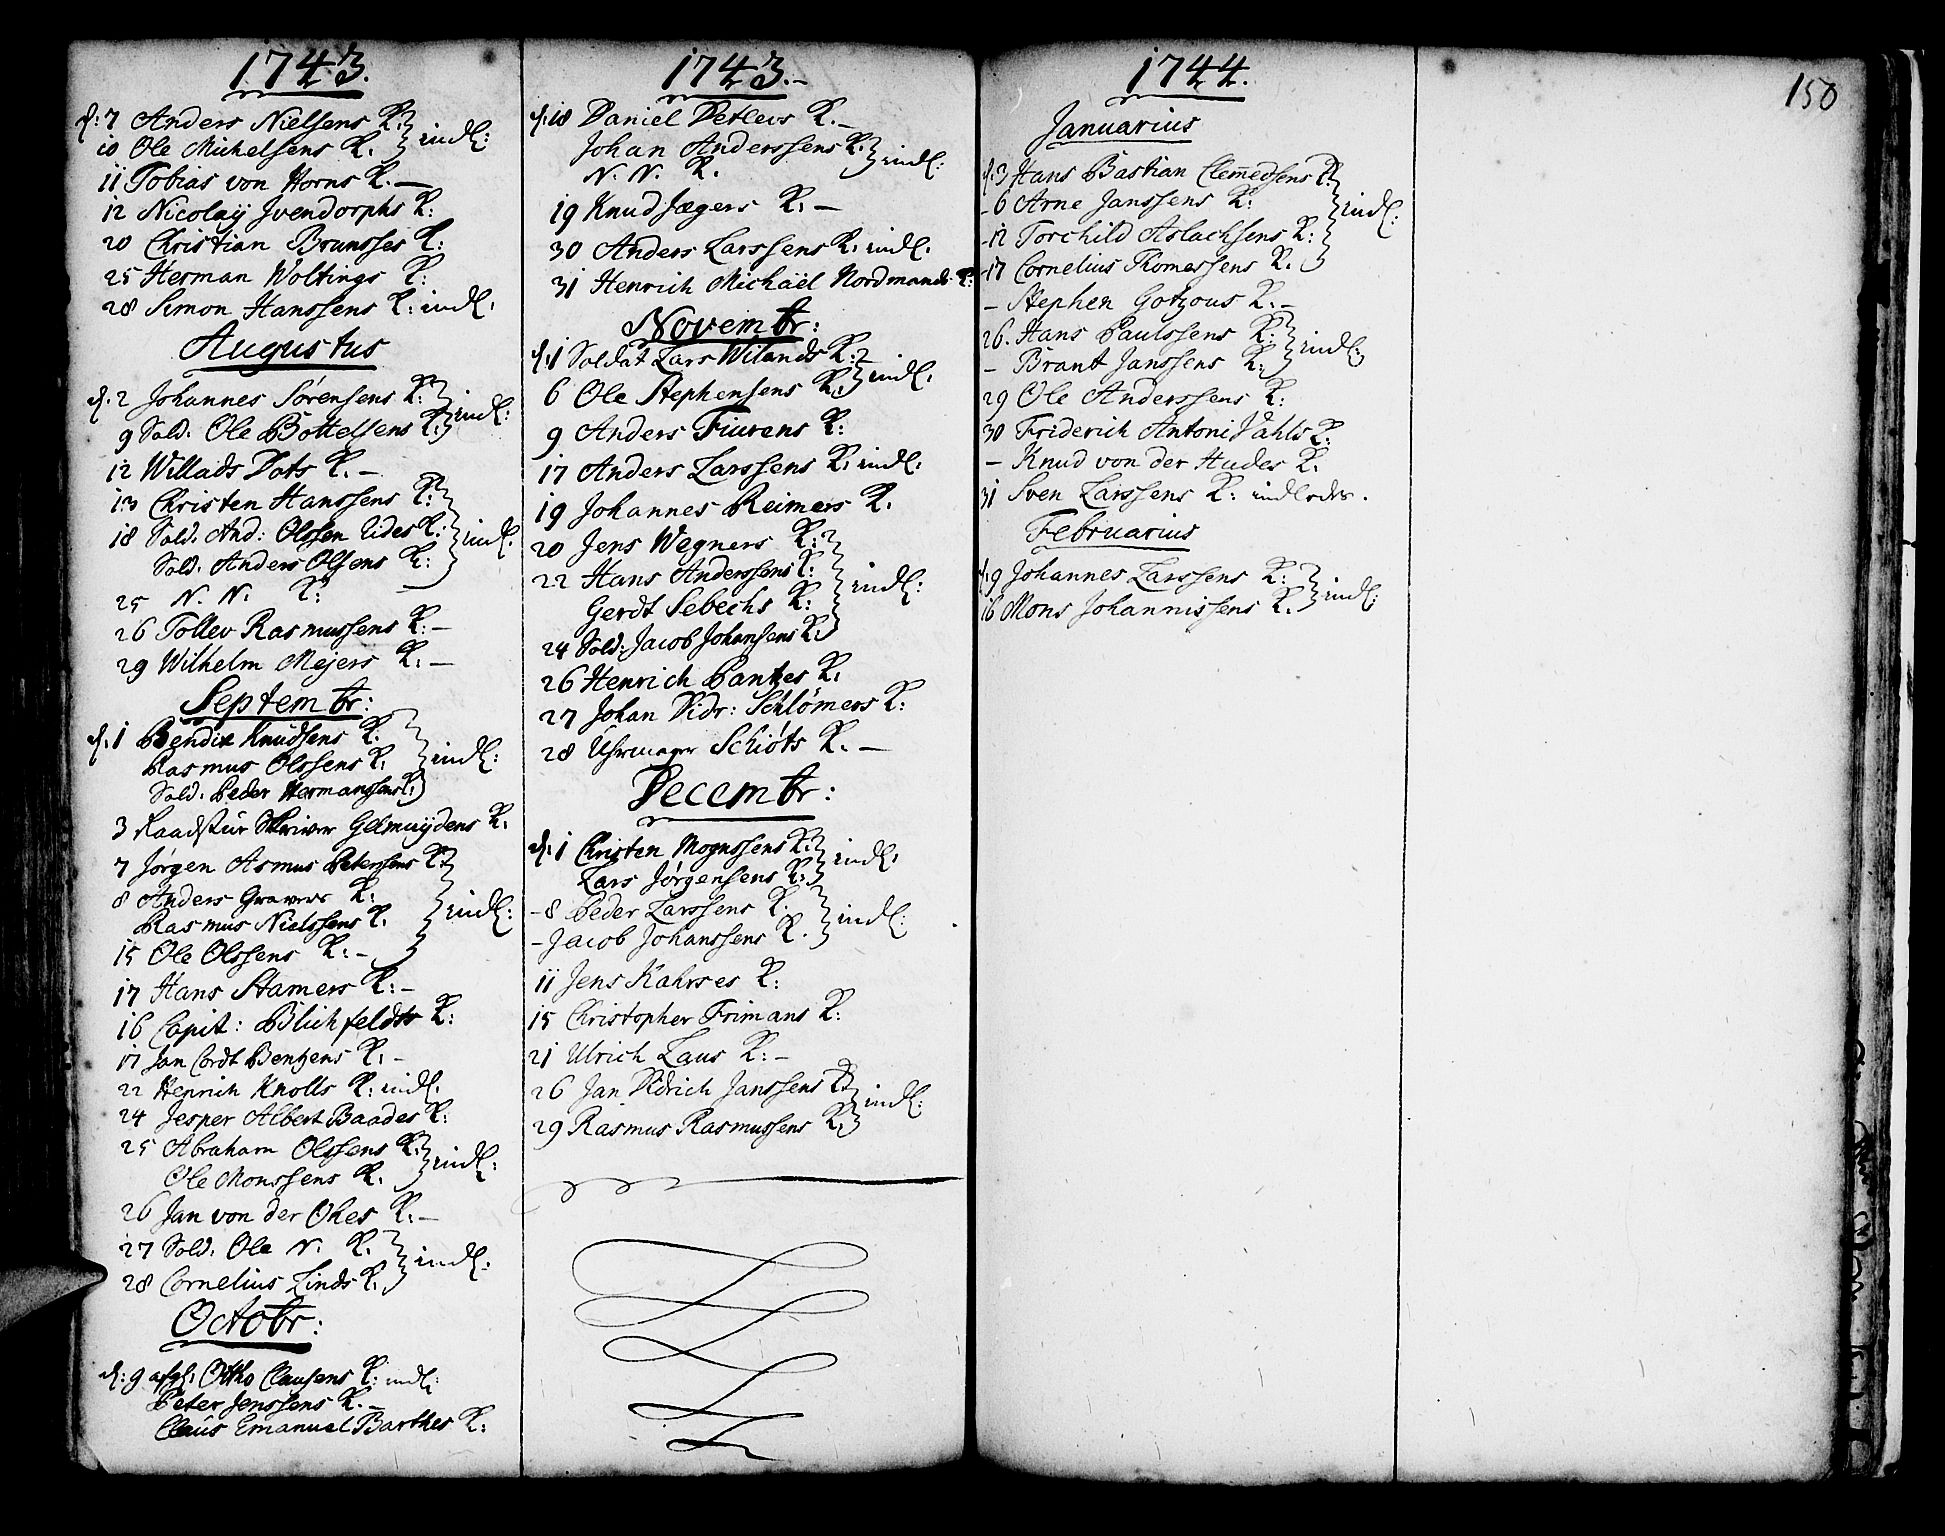 1743.
d: 7 Anders Nielsens K:
10 Ole Michelsens K. indl:
11 Tobias von Horns K. —
12 Nicolaÿ Jvendorphs K:
20 Christian Brunsses K:
25 Herman Woltings K:
28 Simon Hanssens K: indl:
Augustus
d. 2 Johannes Sørensens K:
9 Sold: Ole Bottelsens K: indl:
12 Willads Dots K. —
13 Christen Hanssens K:
18 Sold. And: Olssen Lides K: indl:
Sold. Anders Olsens K:
25 N. N. K:
26 Tollev Rasmussens K: —
29 Wilhelm Mejers K. —
Septembr:
d. 1 Bendix Knudsens K.
Rasmus Olssens K. indl:
Sold. Peder Hermanssens K:
3 Raadstue Skriver Gelmuÿdens K.
7 Jørgen Asmus Petersens K:
8 Anders Gravers K:
Rasmus Nielssens K. indl:
15 Ole Olssens K: —
17 Hans Stamers K: —
16 Capit: Blichfeldts K:
17 Jan Cordt Bentzens K. —
22 Henrich Knolls K: indl.
24 Jesper Albert Baades K:
25 Abraham Olssens K:
Ole Monssens K. indl:
26 Jan von der Ohes K. —
27 Sold. Ole N. K.
28 Cornelius Linds K. indl:
Octobr:
d: 9 afgl: Ottho Clausens K: indl:
Peter Jenssens K. —
Claus Emanuel Barthes K:
1743. —
d: 18 Daniel Detlevs K. —
Johan Anderssens K. indl:
N. N. K.
19 Knud Jægers K. —
30 Anders Larssens K. indl.
31 Henrich Michaël Nordmands K:
Novembr:
d: 1 Soldat Lars Wilands K:
6 Ole Stephensens K. indl.
9 Anders Fiurens K:
17 Anders Larssens K. indl.
19 Johannes Reimers K.
20 Jens Wegners K:
22 Hans Anderssens K: indl:
Gerdt Sebechs K:
24 Sold: Jacob Johansens K.
26 Henrich Pantzes K.
27 Johan Didr: Schlømers K:
28 Uhrmager Schiøts K. —
Decembr:
d: 1 Christen Mognssens K:
Lars Jørgensens K: indl.
- 8 Peder Larssens K.
- Jacob Johanssens K. indl:
11 Jens Kahrses K:
15 Christopher Frimans K:
21 Ulrich Laus K: —
26 Jan Didrich Janssens K:
29 Rasmus Rasmussens K. indl:
1744.
150
Januarius
d: 3 Hans Bastian Clem̄edsens K:
- 6 Arne Janssens K: indl:
- 12 Torchild Aslachsens K:
- 17 Cornelius Thomessens K.
- Stephen Gotzous K. —
26. Hans Paulssens K:
- Brant Janssens K. indl:
29 Ole Anderssens K:
30 Friderich Antoni Vahls K:
- Knud von der Hudes K.
31 Sven Larssens K: indlodes.
Februarius
d: 9 Johannes Larssens K:
16 Mons Johannissens K. indl: